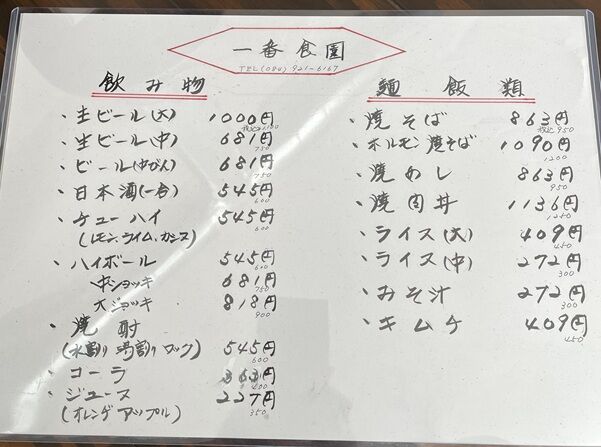 一番食園
TEL(084)921-6167
飲み物
・生ビール(大) 1000円
税込1100
・生ビール(中) 681円
750
・ビール(中びん) 681円
750
・日本酒(一合) 545円
600
・チューハイ 545円
600
(レモン.ライム.カシス)
・ハイボール 545円
600
中ジョッキ 681円
750
大ジョッキ 818円
900
・焼酎
(水割り 湯割り ロック) 545円
600
・コーラ 363円
400
・ジュース 227円
(オレンヂ アップル)
麺飯類
・焼そば 863円
税込950
・ホルモン焼そば 1090円
1200
・焼めし 863円
950
・焼肉丼 1136円
1250
・ライス(大) 409円
450
・ライス(中) 272円
300
・みそ汁 272円
300
・キムチ 409円
450